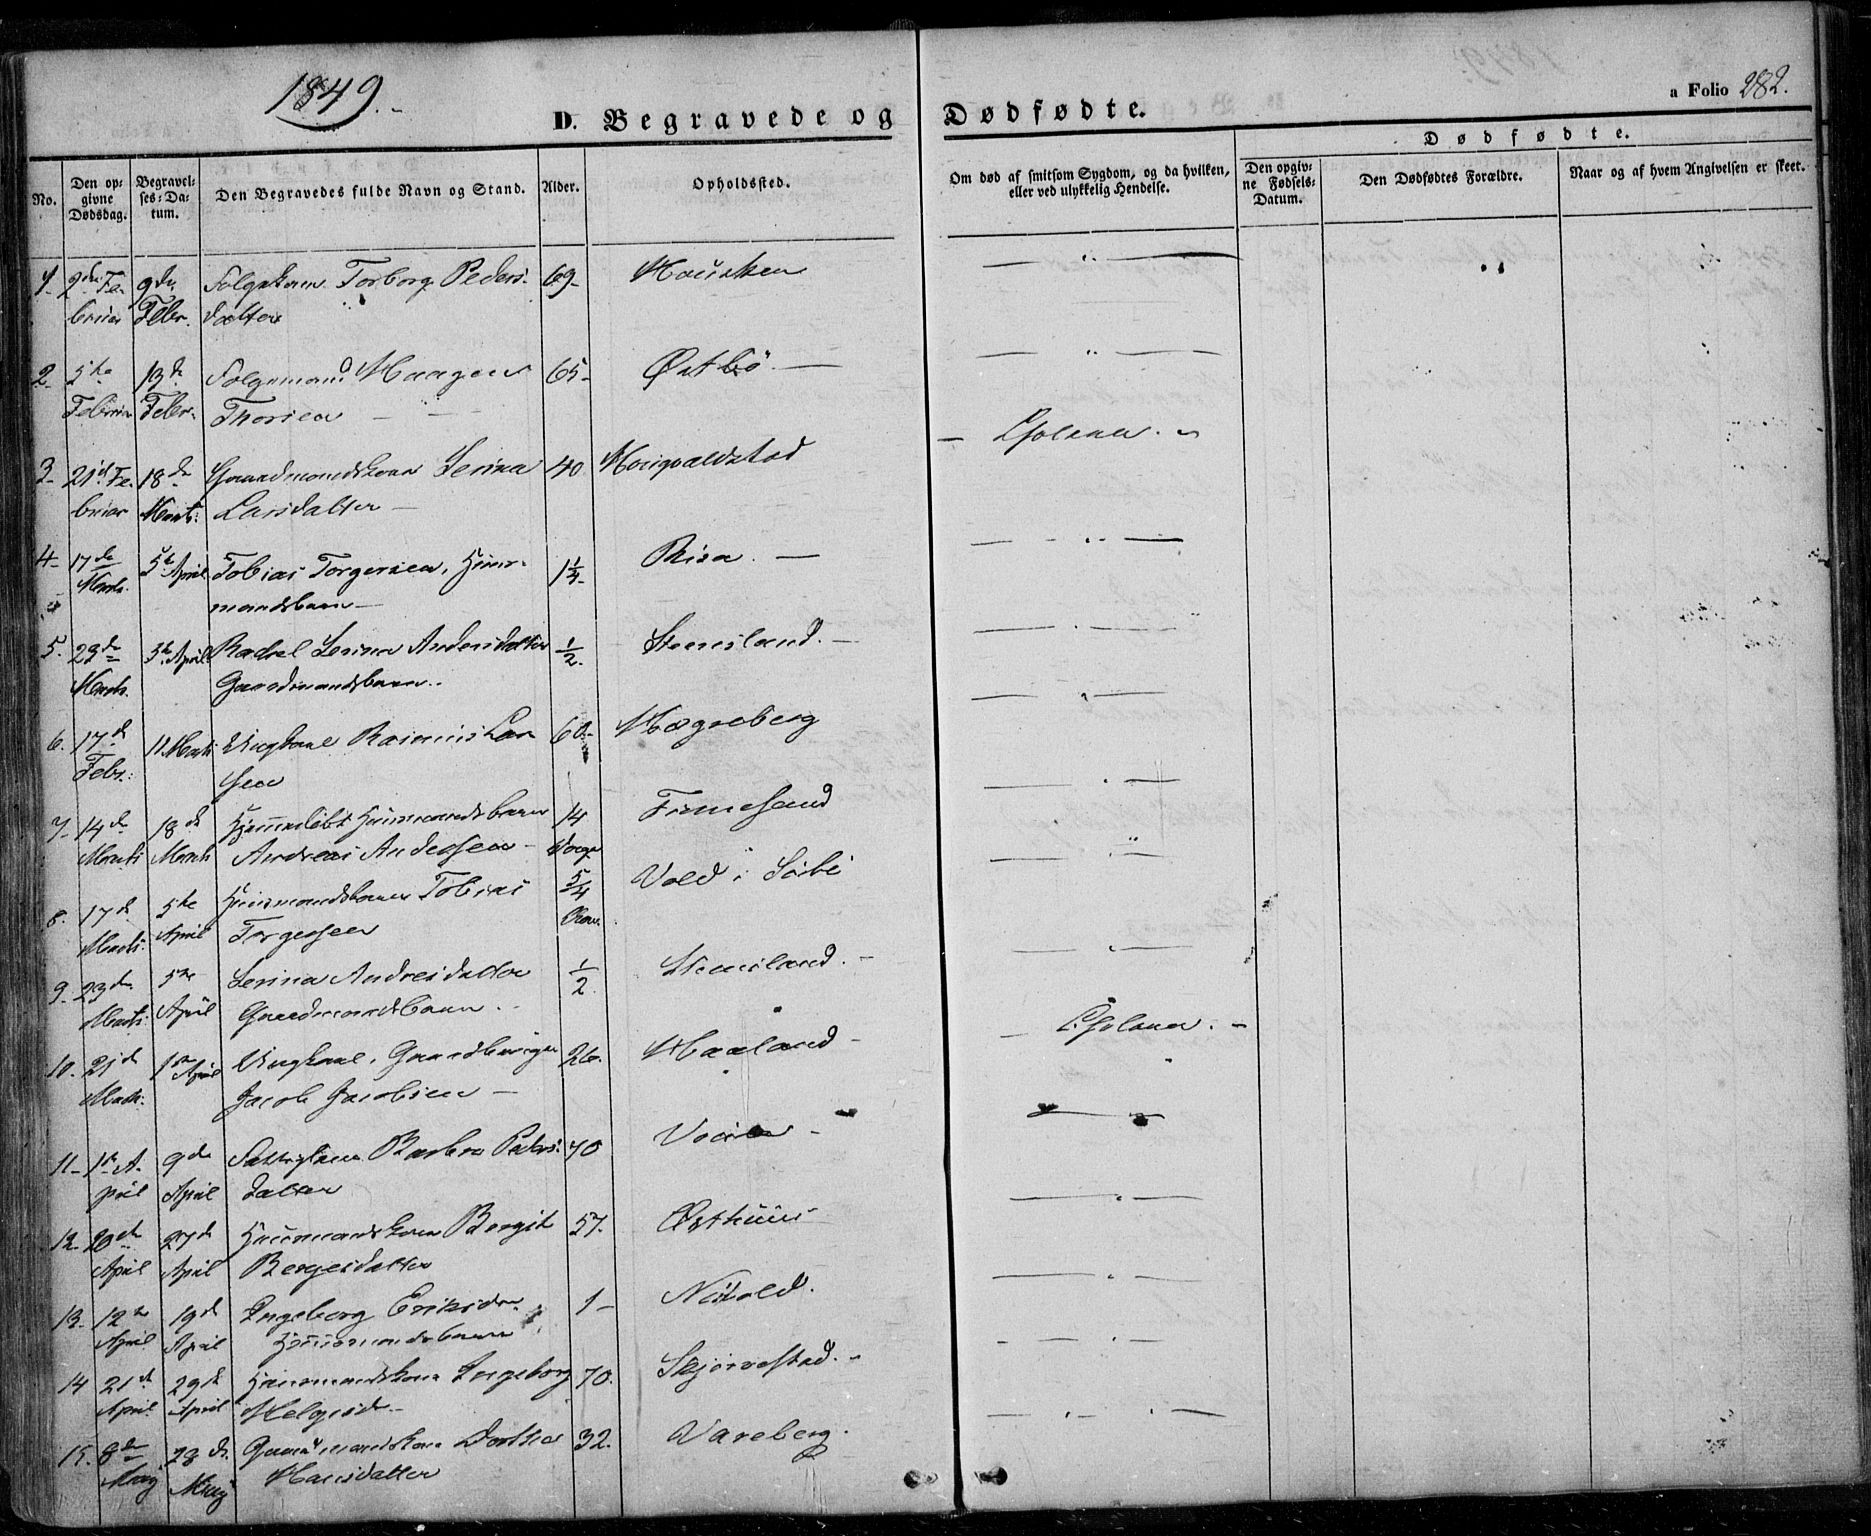 1849.
D. Begravede og Dødfødte.
a Folio 282.
No.
Den opgivne Dødsdag.
Begravelses-Datum.
Den Begravedes fulde Navn og Stand.
Alder.
Opholdssted.
Om død af smitsom Sygdom, og da hvilken, eller ved ulykkelig Hendelse.
Dødfødte.
Den opgivne Fødsels-Datum.
Den Dødfødtes Forældre.
Naar og af hvem Angivelsen er skeet.
1. 2den Fe- 9de Torborg Peders- 69- Housken
bruar Febr. datter
2 5te 13de Folgemand Haagen 65- Østbö. —
Februar Febr. Thorsen
3- 21de Fe- 18de Gaardmandskone Serina 40 Horigvaldstad — Cholera. -
bruar Marts: Larsdatter —
4- 17de 5te April Tobias Torgersen, Huus- 1¼- Risa. —
Marts. mandsbarn —
5. 23de 5te April Rachel Serina Andersdatter ½. Stensland. —
Marts. Gaardmandsbarn.
6. 17de 11 Marts Ungkarl Rasmus Lar- 60- Hægreberg
Febr: sen
7- 14de 18de Hjemmedöbt Huusmandsbarn 14 Finnesand
Marts Marts Andreas Andersen — Dage
8. 17de 5te Huusmandsbarn Tobias 5/4 Vold i Sörbö
Marts. April Torgersen Aar.
9. 23de 5te Serina Andreisdatter ½. Stensland. —
Marts. April Gaardmandsbarn.
10. 21de 1ste April Ungkarl, 26. Haaland — — Cholera. -
Marts. Jacob Jacobsen —
11- 1ste A- 9de Barbra Peders- 70
pril April datter
12. 20de 27de Huusmandskone Bergit 57. Østhuus
April April Bergesdatter
13. 12te 19de Ingeborg Eriksdr. 1-
April April Huusmandsbarn
14 21de 29de Huusmandskone Ingeborg 70. Skjörvestad. -
April. April Helgesdr-
15. 8de 28de. Gaardmandskone Dorthea 32. Vareberg.
May May Hansdatter